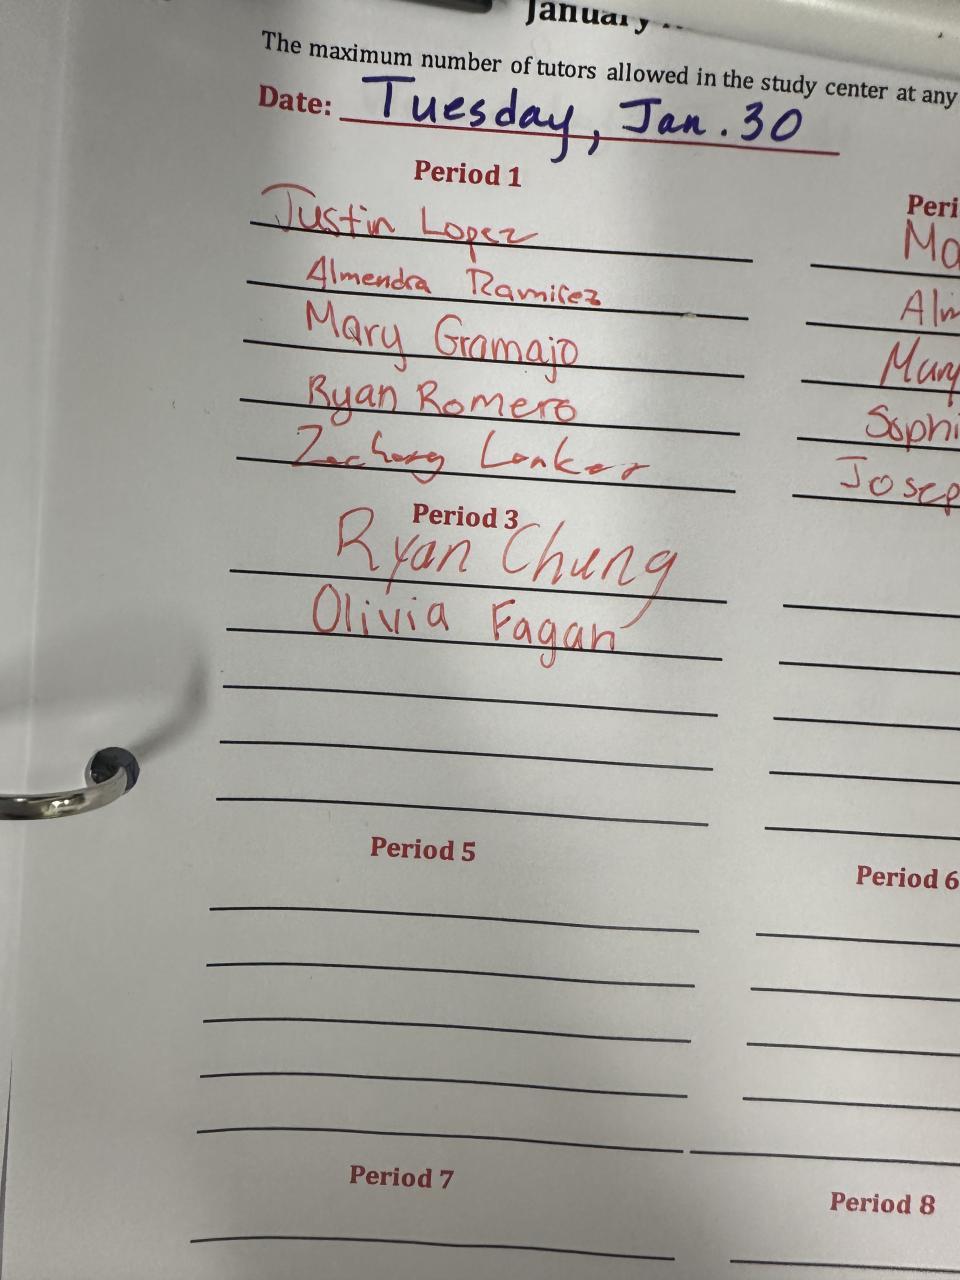 January
The maximum number of tutors allowed in the study center at any
Date: Tuesday, Jan. 30
Period 1
Justin Lopez
Almendra Ramirez
Mary Gramajo
Ryan Romero
Zachary
Peri
Ma
Alm
Mary
Sophi
Josep
Period 3
Ryan Chung
Olivia Fagan
Period 5
Period 6
Period 7
Period 8